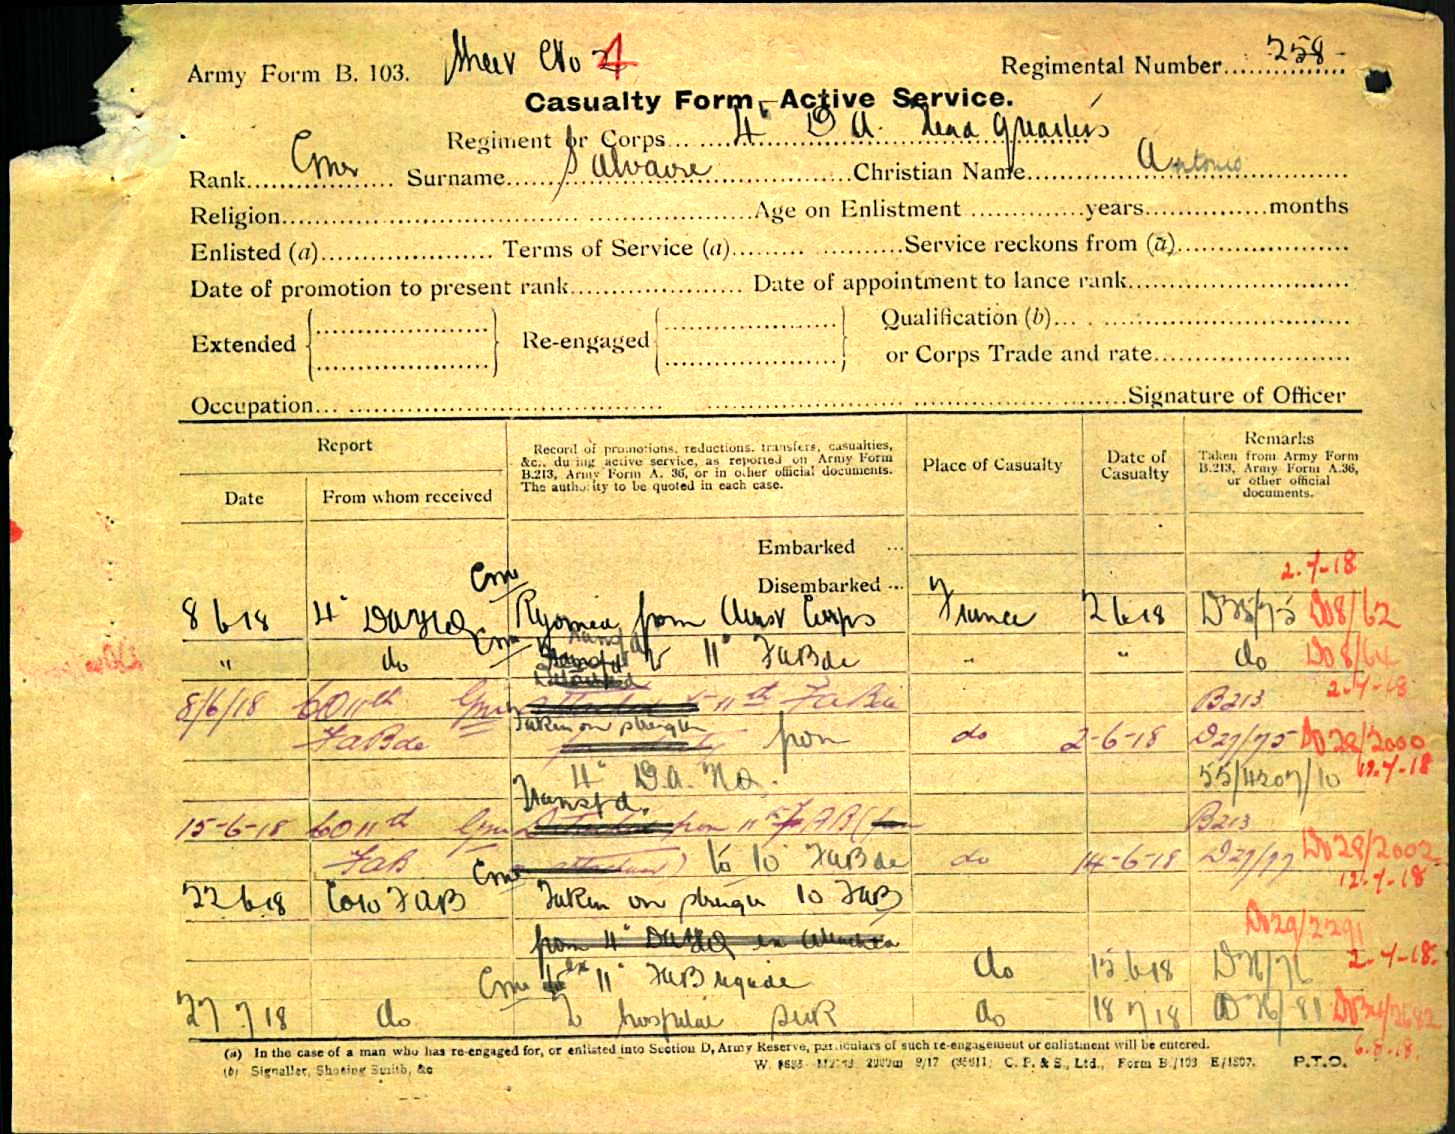 Army Form B. 103. Sheet No 4 Regimental Number 258
Casualty Form, Active Service.
Regiment or Corps 4" D A. Head Quarters
Rank Gnr Surname Salvatore Christian Name Antonio
Religion Age on Enlistment years months
Enlisted (a) Terms of Service (a) Service reckons from (a)
Date of promotion to present rank Date of appointment to lance rank
Extended Re-engaged Qualification (b)
or Corps Trade and rate
Occupation Signature of Officer
Report
Date From whom received
Record of promotions, reductions, transfers, casualties, &c., during active service, as reported on Army Form B.213, Army Form A. 36, or in other official documents. The authority to be quoted in each case.
Place of Casualty
Date of Casualty
Remarks
Taken from Army Form B.213, Army Form A.36, or other official documents.
Embarked
Disembarked
2-7-18
8 6 18 4" DAHQ Gnr Rejoined from Aust Corps France 2 6 18 D38/75 DO8/62
" do Gnr Transfd to 11" FABde " " do DO8/64
2-7-18
8/6/18 CO 11th Gnr 11th FABde B213
FABde Taken on strength from do 2-6-18 D27/75 DO28/2000
4" D.A. HQ. 55/4207/10 12-7-18
Transfd.
15-6-18 CO 11th Gnr from 11th FAB B213
FAB to 10" FABde do 14-6-18 D27/77 DO28/2002
12-7-18
22 6 18 CO 10 FAB Gnr Taken on strength 10 FAB
from 4" DAHQ DO29/2291
Gnr ex 11" FABrigade do 15 6 18 D76/76 2-7-18
27 7 18 do To hospital sick do 18 7 18 D76/81 DO34/2682
6-8-18
(a) In the case of a man who has re-engaged for, or enlisted into Section D, Army Reserve, particulars of such re-engagement or enlistment will be entered.
(b) Signaller, Shoeing Smith, &c C. P. & S., Ltd., Form B./103 E/1807. P.T.O.